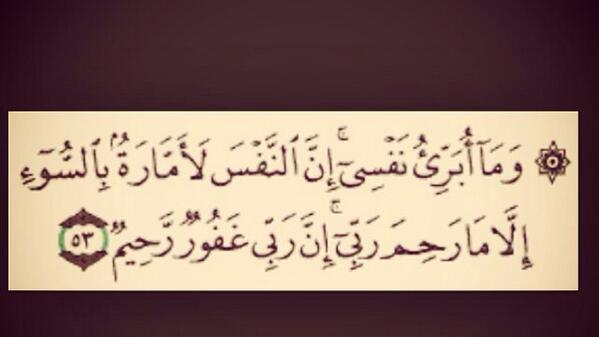 ۞ وَمَآ أُبَرِّئُ نَفْسِىٓ ۚ إِنَّ ٱلنَّفْسَ لَأَمَّارَةٌۢ بِٱلسُّوٓءِ
إِلَّا مَا رَحِمَ رَبِّىٓ ۚ إِنَّ رَبِّى غَفُورٌ رَّحِيمٌ ٥٣